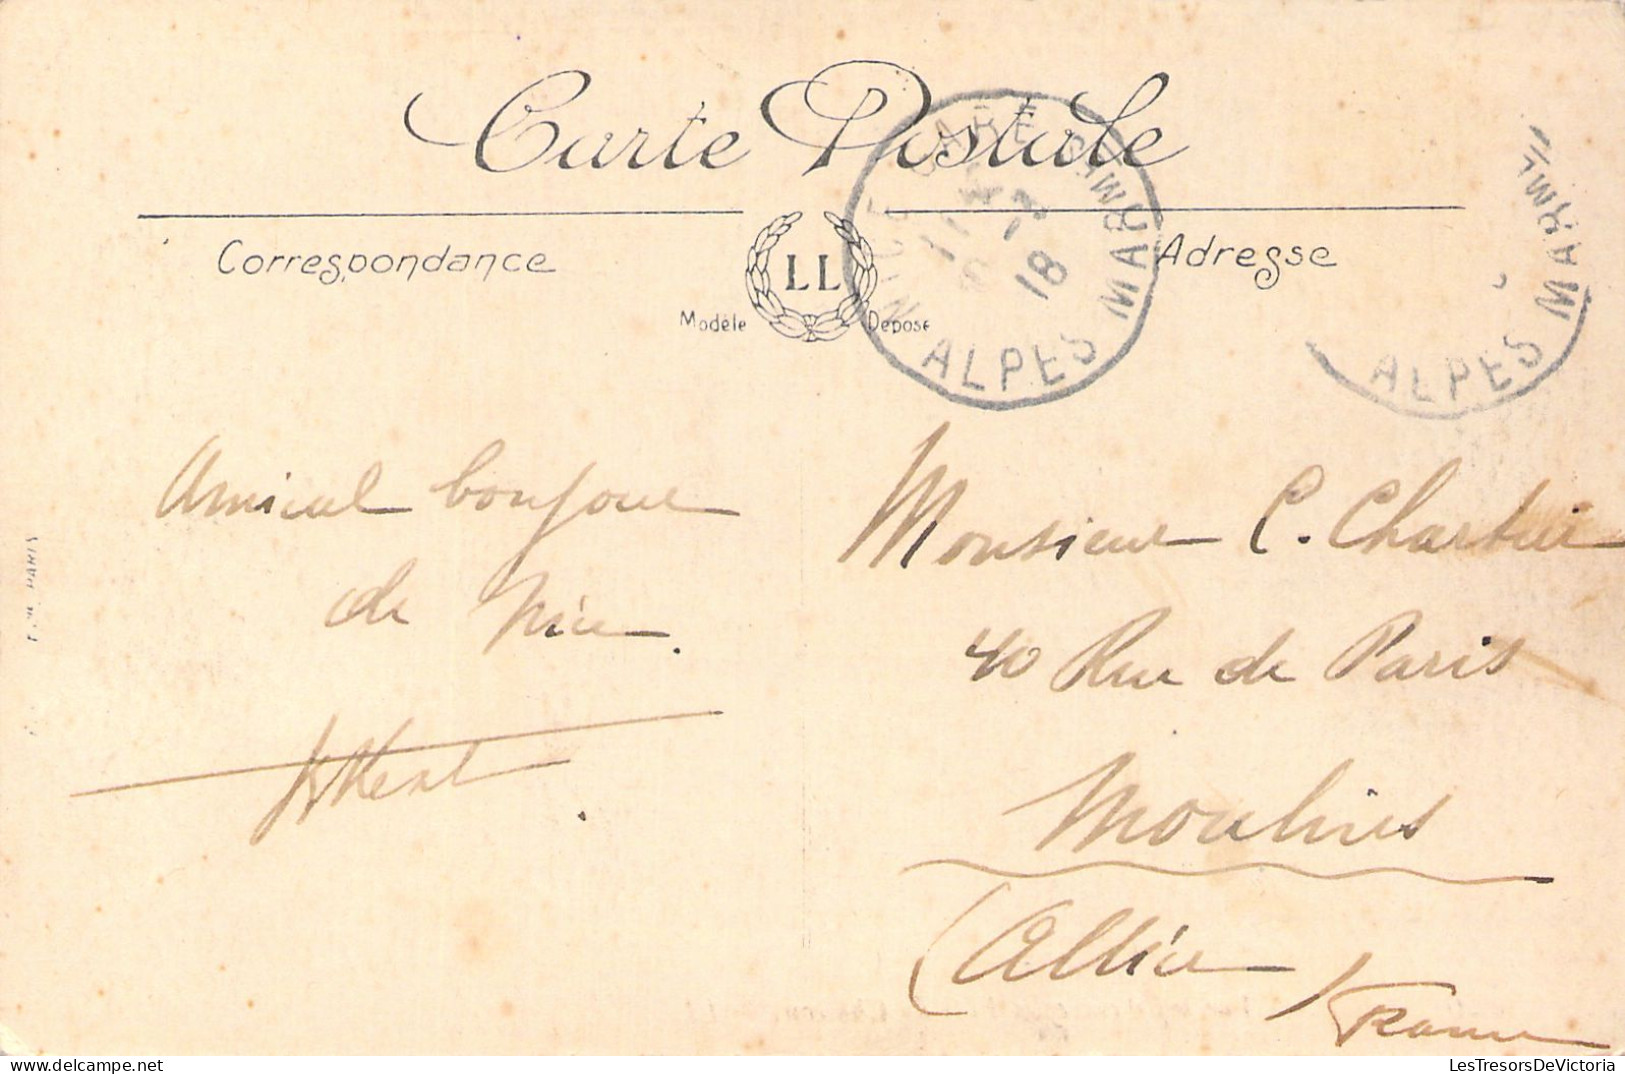 Carte Postale
Correspondance
LL
Modèle Déposé
Adresse
NICE GARE
18
ALPES MARmes
ALPES MARmes
Amical bonjour
de Nice.
Monsieur C. Chartier
40 Rue de Paris
Moulins
(Allier)
France
PARIS
LesTresorsDeVictoria